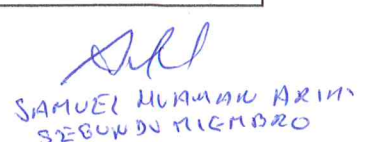 SAMUEL HUAMAN
SEGUNDO MIEMBRO